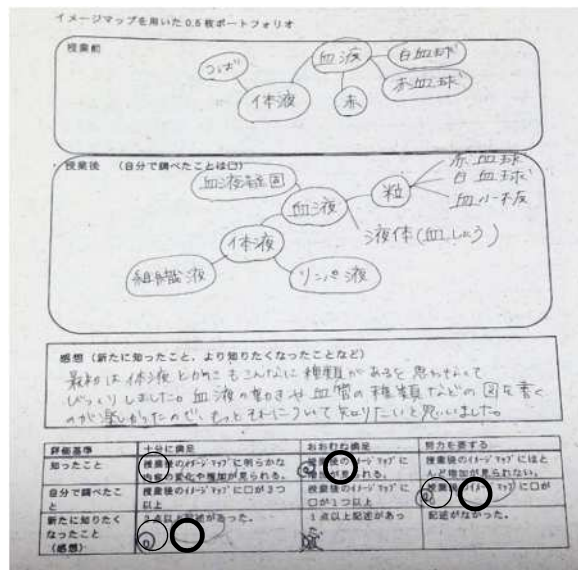 イメージマップを用いた0.5枚ポートフォリオ
授業前
つば
血液
白血球
赤血球
体液
赤
授業後 (自分で調べたことは□)
血液凝固
血液
粒
赤血球
白血球
血小板
液体(血しょう)
体液
組織液
リンパ液
感想(新たに知ったこと、より知りたくなったことなど)
最初は体液とかにもこんなに種類があると思わなくて
びっくりしました。血液の動きや血管の種類などの図を書く
のが楽しかったので、もっとそれについて知りたいと思いました。
評価基準 十分に満足 おおむね満足 努力を要する
知ったこと 授業後のイメージマップに明らかな 授業後のイメージマップに 授業後のイメージマップにほと
内容の変化や増加が見られる。 増加が見られる。 んど増加が見られない。
自分で調べたこ 授業後のイメージマップに□が3つ 授業後のイメージマップに 授業後のイメージマップに□が
と 以上 □が1つ以上
新たに知りたく 2点以上記述があった。 1点以上記述があっ 記述がなかった。
なったこと
(感想)